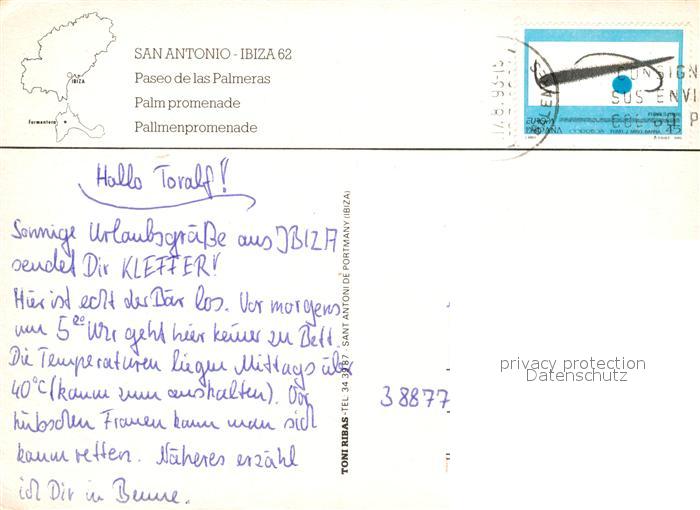 SAN ANTONIO - IBIZA 62
Paseo de las Palmeras
Palm promenade
Pallmenpromenade
IBIZA
Formentera
EUROPA
ESPAÑA
CORREOS
45
CONSIGN
SUS ENVI
Hallo Toralf!
Sonnige Urlaubsgrüße aus IBIZA
sendet Dir KLEFFER!
Hier ist echt der Bär los. Vor morgens
um 5⁰⁰ Uhr geht hier keiner zu Bett.
Die Temperaturen liegen Mittags über
40°C (kaum zum aushalten). Vor
hübschen Frauen kann man sich
kaum retten. Näheres erzähl
ich Dir in Benne.
TONI RIBAS - TEL. 34 39 87 - SANT ANTONI DE PORTMANY (IBIZA)
38877
privacy protection
Datenschutz